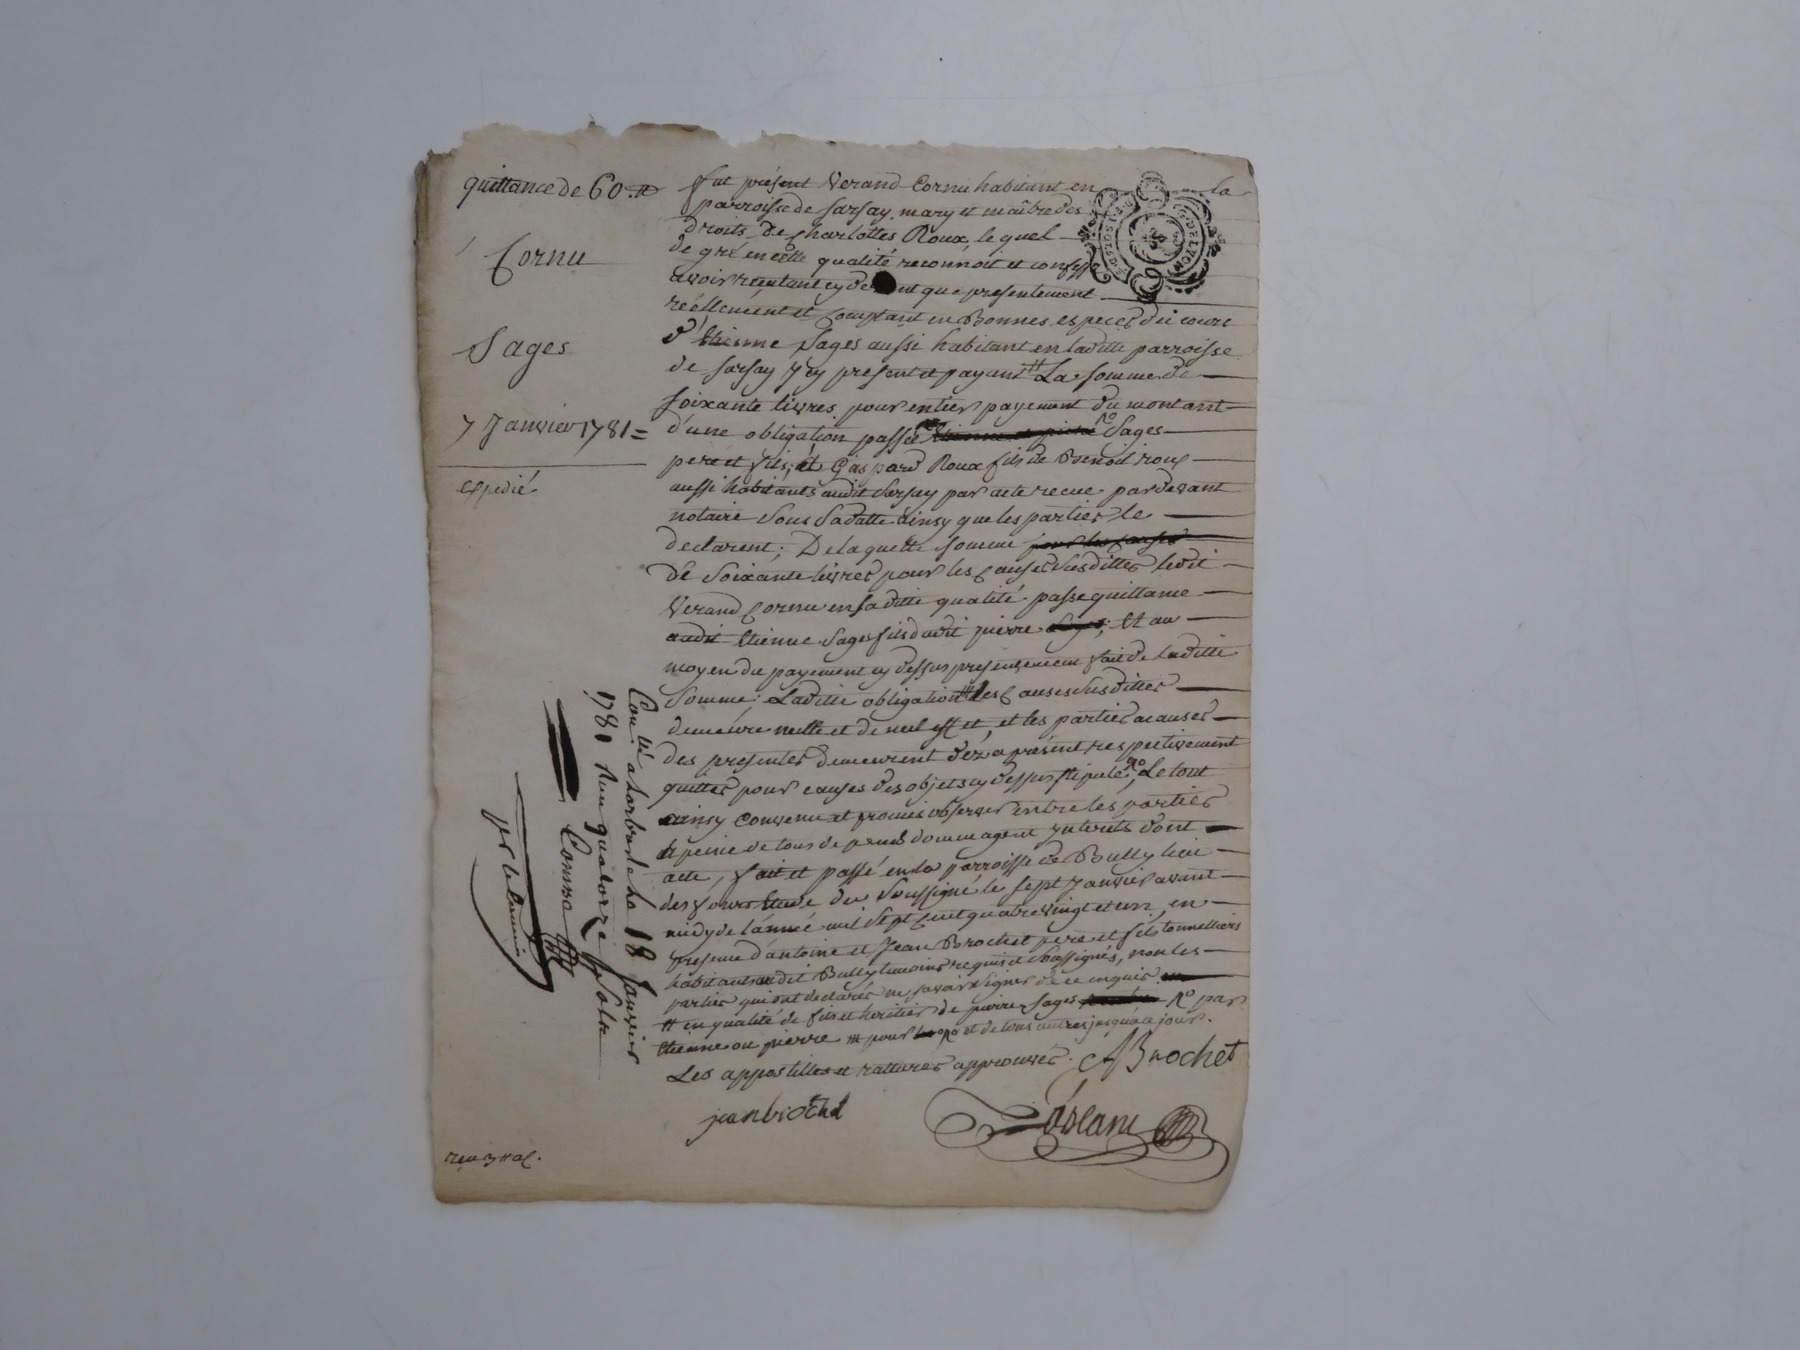 quittance de 60.#
Cornu
Sages
7 Janvier 1781 =
expedié
fut présent Verand Cornu habitant en la
parroisse de Sarsay, mary et maître des
droits de Charlottes Roux, lequel
de gré en cette qualité reconnoit et confesse
avoir reçu tant cy devant que presentement
réellement et comptant en Bonnes especes du cours
d'Etienne Sages aussi habitant en laditte parroisse
de Sarsay y cy present et payant # La somme de
soixante livres pour entier payement du montant
d'une obligation passée Rº Sages
pere et fils, et Gaspard Roux fils de Benoit roux
aussi habitants audit Sarsay par acte recue pardevant
notaire sous sa datte ainsy que les parties le
declarent; De laquelle somme pour les causes
de Soixante livres pour les Causes susdittes ledit
Verand Cornu en saditte qualité passe quittance
audit Etienne Sages fils dudit pierre Sages; Et au
moyen du payement cy dessus presentement fait de laditte
Somme; Laditte obligation # les Causes susdittes
demeure nulle et de nul effet, et les parties acauses
des presentes demeurent déz a présent respectivement
quittes pour causes des objets cy dessus stipulé Rº, Le tout
ainsy convenu et promis observer entre les parties
a peine de tous depends dommages et Interets dont
acte, fait et passé en la parroisse de Bully lieu
des fours Etude du Soussigné le sept Janvier avant
midy de l'année mil Sept Cent quatre vingt et un, en
presence d'antoine et Jean Brochet pere et fils tonnelliers
habitants audit Bully temoins requis et Soussignés, non les
parties qui ont declarés ne savoir signer de ce enquis
# en qualité de fils et heritier de pierre Sages Rº par
Etienne ou pierre ## pour Rº et de tous autres jusqu'a ce jour.
Les appostilles et rattures approuvés. ABrochet
jean brochet
Con lé a Larbresle le 18 Janvier
1781 Reçu quatorze sols
reçu 3 #